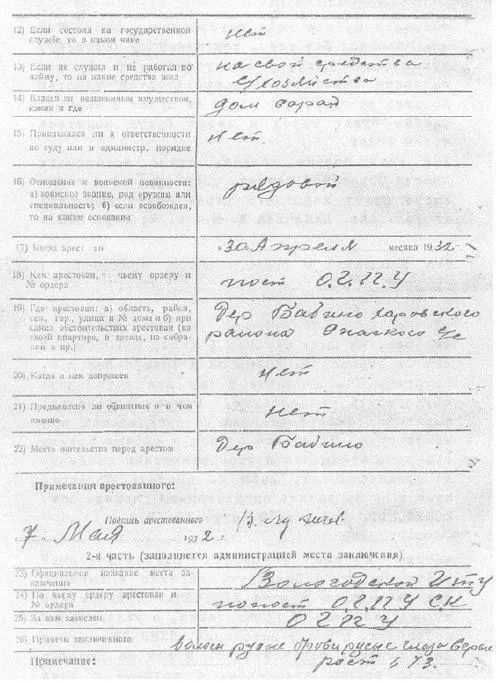 12) Если состоял на государственной
службе, то в каком чине
нет
13) Если не служил и не работал по
найму, то на какие средства жил
на свои средства
с/хозяйства
14) Владел ли недвижимым имуществом,
каким и где
дом сарай
15) Привлекался ли к ответственности
по суду или в администр. порядке
нет
16) Отношение к воинской повинности:
а) воинское звание, род оружия или
специальность; б) если освобожден,
то на каком основании
рядовой
17) Когда арестован
"30 Апреля месяца 1932
18) Кем арестован, по чьему ордеру и
№ ордера
пост О.Г.П.У
19) Где арестован: а) область, район,
сел., гор., улица и № дома и б) при
каких обстоятельствах арестован (на
своей квартире, в засаде, на собра-
нии и пр.)
Дер Бабино Харовского
района с/с
20) Когда и кем допрошен
нет
21) Предъявлено ли обвинение и в чем
именно
нет
22) Место жительства перед арестом
Дер Бабино
Примечания арестованного:
Подпись арестованного
7 Мая 1932 г.
2-я часть (заполняется администрацией места заключения)
23) Официальное название места за-
ключения
Вологодской
24) По чьему ордеру арестован и
№ ордера
О.Г.П.У С.К
25) За кем зачислен
О Г П У
26) Приметы заключенного
волоса русые брови русые глаза серые
Примечание:
рост 173.